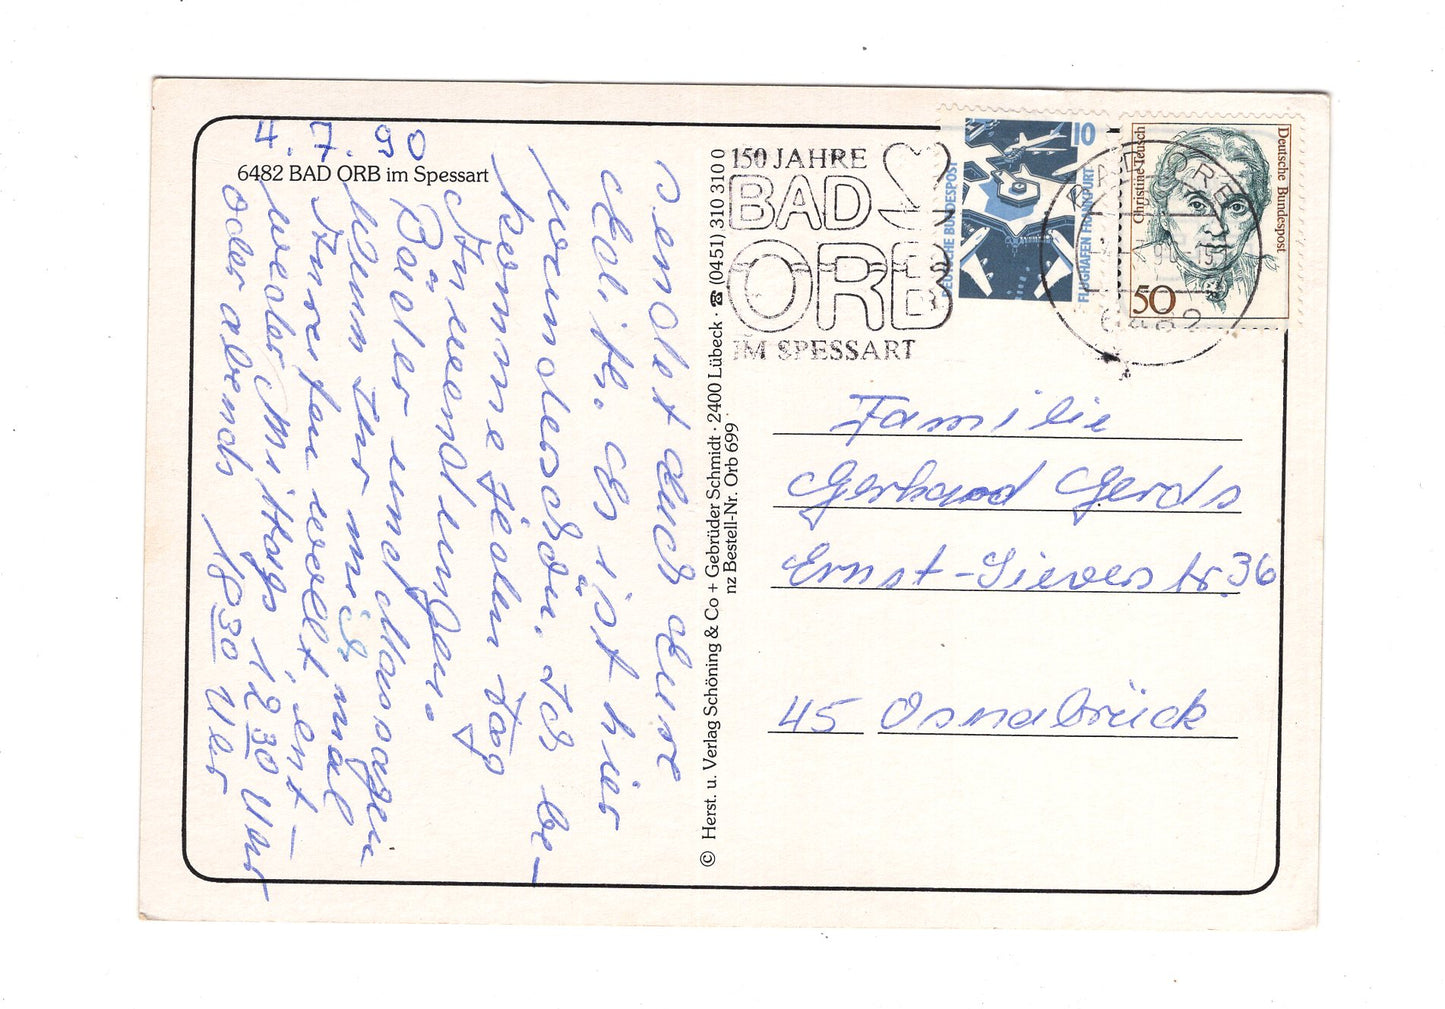 4.7.90
6482 BAD ORB im Spessart
sendet euch eure
Edith. Es ist hier
wunderschön. Ich be-
komme jeden Tag
Anwendungen.
Bäder und Massagen
Wenn Ihr mich mal
Anrufen wollt, ent-
weder Mittags 12 30 Uhr
oder abends 18 30 Uhr
© Herst. u. Verlag Schöning & Co + Gebrüder Schmidt · 2400 Lübeck · ☎ (0451) 310 310 0
nz Bestell-Nr. Orb 699
150 JAHRE
BAD
ORB
IM SPESSART
DEUTSCHE BUNDESPOST
10
FLUGHAFEN FRANKFURT
Christine Teusch
Deutsche Bundespost
50
BAD ORB
6482
Familie
Gerhard Gerds
Ernst-Sievers Str. 36
45 Osnabrück